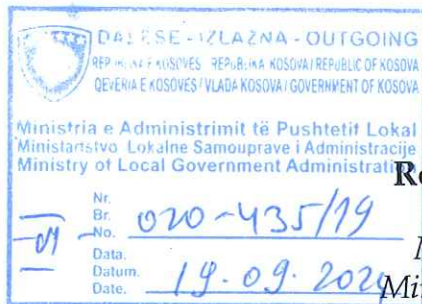 DALËSE - IZLAZNA - OUTGOING
REPUBLIKA E KOSOVËS REPUBLIKA KOSOVA / REPUBLIC OF KOSOVA
QEVERIA E KOSOVËS / VLADA KOSOVA / GOVERNMENT OF KOSOVA
Ministria e Administrimit të Pushtetit Lokal
Ministarstvo Lokalne Samouprave i Administracije
Ministry of Local Government Administration
Nr.
Br.
No. 020-435/19
Data.
Datum.
Date. 19.09.2024